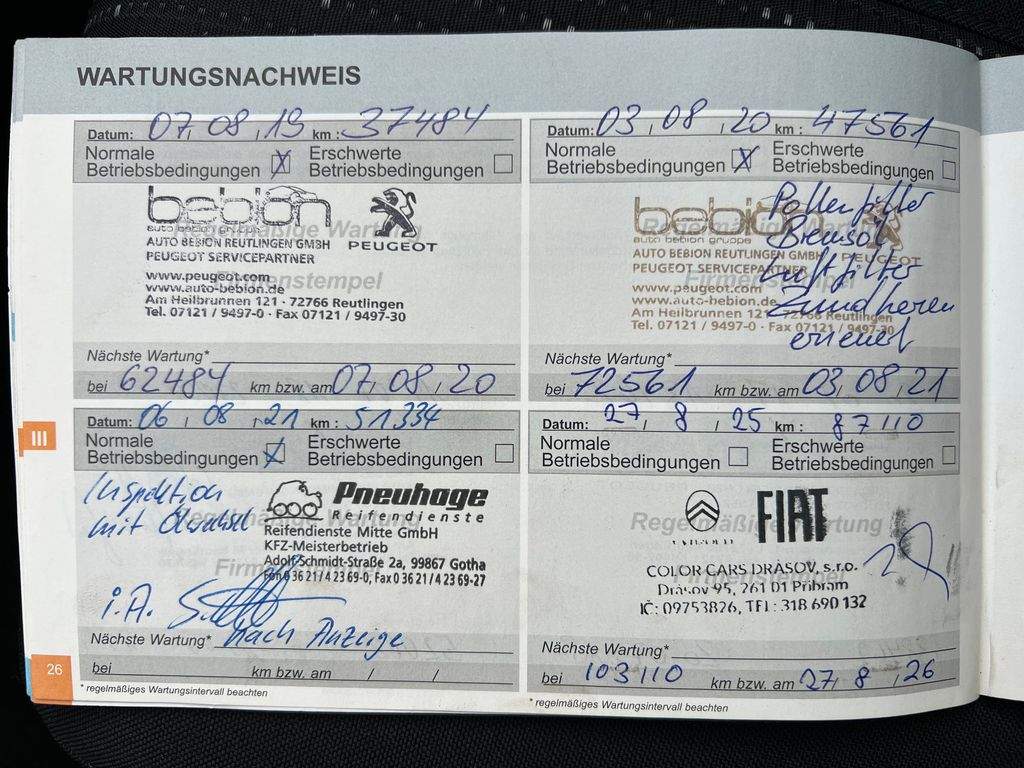 WARTUNGSNACHWEIS
Datum: 07.08.19 km: 37484
Normale Betriebsbedingungen X Erschwerte Betriebsbedingungen
bebion
auto bebion gruppe
Regelmäßige Wartung
AUTO BEBION REUTLINGEN GMBH
PEUGEOT SERVICEPARTNER
PEUGEOT
Firmenstempel
www.peugeot.com
www.auto-bebion.de
Am Heilbrunnen 121 · 72766 Reutlingen
Tel. 07121 / 9497-0 · Fax 07121 / 9497-30
Nächste Wartung*
bei 62484 km bzw. am 07/08/20
Datum: 03/08/20 km: 47561
Normale Betriebsbedingungen X Erschwerte Betriebsbedingungen
bebion
auto bebion gruppe
Regelmäßige Wartung
AUTO BEBION REUTLINGEN GMBH
PEUGEOT SERVICEPARTNER
PEUGEOT
Firmenstempel
www.peugeot.com
www.auto-bebion.de
Am Heilbrunnen 121 · 72766 Reutlingen
Tel. 07121 / 9497-0 · Fax 07121 / 9497-30
Pollenfilter
Luftfilter
Zündkerzen
erneuert
Nächste Wartung*
bei 72561 km bzw. am 03/08/21
Datum: 06/08/21 km: 51334
Normale Betriebsbedingungen X Erschwerte Betriebsbedingungen
Inspektion
mit Ölwechsel
Regelmäßige Wartung
Firmenstempel
Pneuhage
Reifendienste
Reifendienste Mitte GmbH
KFZ-Meisterbetrieb
Adolf-Schmidt-Straße 2a, 99867 Gotha
Fon 0 36 21 / 4 23 69-0, Fax 0 36 21 / 4 23 69-27
i.A.
Nächste Wartung* nach Anzeige
bei km bzw. am / /
* regelmäßiges Wartungsintervall beachten
Datum: 27/8/25 km: 87110
Normale Betriebsbedingungen Erschwerte Betriebsbedingungen
FIAT
Regelmäßige Wartung
Firmenstempel
COLOR CARS DRÁSOV, s.r.o.
Drásov 95, 261 01 Příbram
IČ: 09753826, TEL: 318 690 132
Nächste Wartung*
bei 103110 km bzw. am 27/8/26
* regelmäßiges Wartungsintervall beachten
III
26